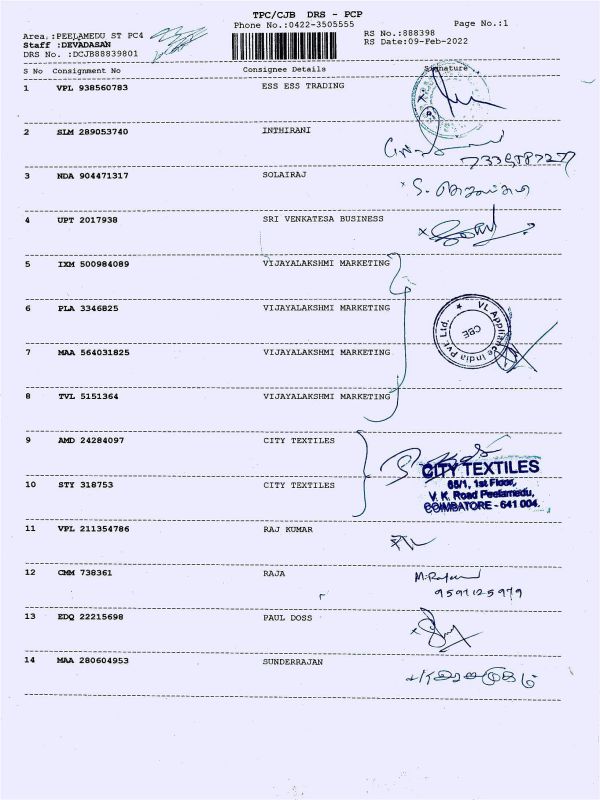 TPC/CJB DRS - PCP
Phone No.:0422-3505555
Page No.:1
Area.:PEELAMEDU ST PC4
RS No.:888398
Staff :DEVADASAN
RS Date:09-Feb-2022
DRS No. :DCJB88839801
S No Consignment No Consignee Details Signature
1 VPL 938560783 ESS ESS TRADING
2 SLM 289053740 INTHIRANI
3 NDA 904471317 SOLAIRAJ
4 UPT 2017938 SRI VENKATESA BUSINESS
5 IXM 500984089 VIJAYALAKSHMI MARKETING
6 PLA 3346825 VIJAYALAKSHMI MARKETING
VL Appliance India Pvt. Ltd.
CBE
7 MAA 564031825 VIJAYALAKSHMI MARKETING
8 TVL 5151364 VIJAYALAKSHMI MARKETING
9 AMD 24284097 CITY TEXTILES
CITY TEXTILES
65/1, 1st Floor,
V. K. Road Peelamedu,
COIMBATORE - 641 004.
10 STY 318753 CITY TEXTILES
11 VPL 211354786 RAJ KUMAR
12 CMM 738361 RAJA
9597125979
13 EDQ 22215698 PAUL DOSS
14 MAA 280604953 SUNDERRAJAN